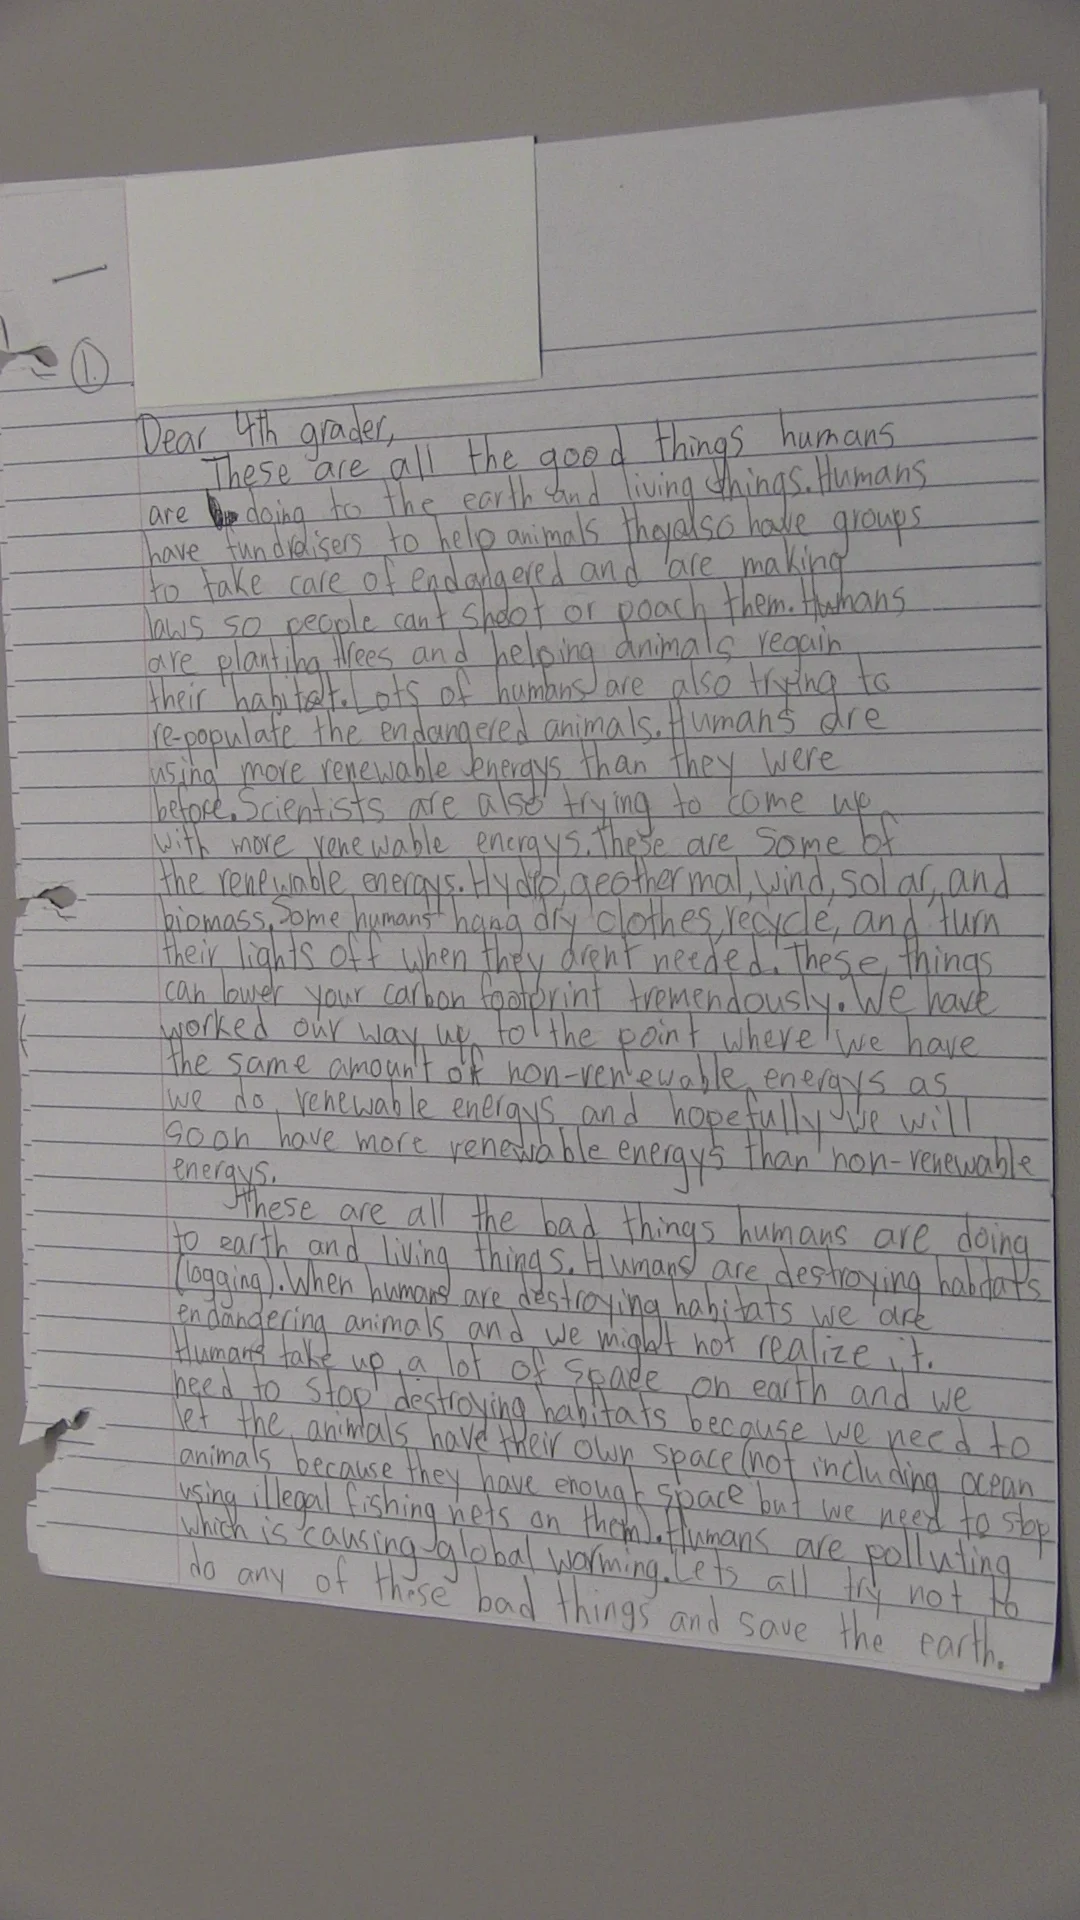 1.
Dear 4th grader,
These are all the good things humans
are doing to the earth and living things. Humans
have fundraisers to help animals they also have groups
to take care of endangered and are making
laws so people can't shoot or poach them. Humans
are planting trees and helping animals regain
their habitat. Lots of humans are also trying to
re-populate the endangered animals. Humans are
using more renewable energys than they were
before. Scientists are also trying to come up
with more renewable energys. These are some of
the renewable energys. Hydro, geothermal, wind, solar, and
biomass. Some humans hang dry clothes, recycle, and turn
their lights off when they arent needed. These things
can lower your carbon footprint tremendously. We have
worked our way up to the point where we have
the same amount of non-renewable energys as
we do renewable energys and hopefully we will
soon have more renewable energys than non-renewable
energys.
These are all the bad things humans are doing
to earth and living things. Humans are destroying habitats
(logging). When humans are destroying habitats we are
endangering animals and we might not realize it.
Humans take up a lot of space on earth and we
need to stop destroying habitats because we need to
let the animals have their own space (not including ocean
animals because they have enough space but we need to stop
using illegal fishing nets on them). Humans are polluting
which is causing global warming. Lets all try not to
do any of these bad things and save the earth.